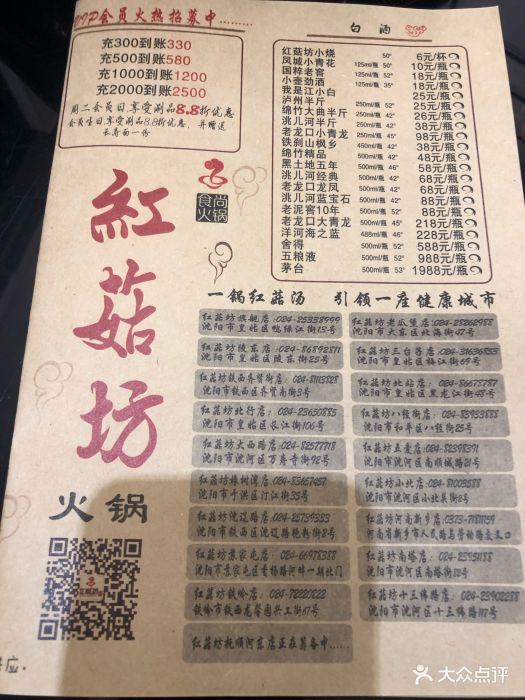 VIP会员火热招募中......
充300到账330
充500到账580
充1000到账1200
充2000到账2500
周二会员日享受涮品8.8折优惠
会员生日享受涮品8.8折优惠，并赠送
长寿面一份
白酒
红菇坊小烧 50° 6元/杯
凤城小青花 125ml/瓶 50° 10元/瓶
国粹老窖 125ml/瓶 52° 18元/瓶
小壹劲酒 125ml/瓶 35° 18元/瓶
我是江小白 25元/瓶
泸州半斤 250ml/瓶 52° 25元/瓶
绵竹大曲半斤 250ml/瓶 42° 26元/瓶
洮儿河半斤 250ml/瓶 42° 38元/瓶
老龙口小青龙 250ml/瓶 45° 98元/瓶
铁刹山枫乡 450ml/瓶 42° 38元/瓶
绵竹精品 500ml/瓶 42° 48元/瓶
黑土地五年 500ml/瓶 42° 58元/瓶
洮儿河经典 500ml/瓶 42° 68元/瓶
老龙口龙凤 500ml/瓶 42° 68元/瓶
洮儿河蓝宝石 500ml/瓶 42° 88元/瓶
老泥窖10年 500ml/瓶 52° 88元/瓶
老龙口大青龙 500ml/瓶 45° 218元/瓶
洋河海之蓝 488ml/瓶 46° 228元/瓶
舍得 500ml/瓶 52° 588元/瓶
五粮液 500ml/瓶 52° 988元/瓶
茅台 500ml/瓶 53° 1988元/瓶
食尚
火锅
紅菇坊
火锅
一锅红菇汤 引领一座健康城市
红菇坊旗舰店：024-25338999
沈阳市皇姑区鸭绿江街13号
红菇坊陵东店：024-86892811
沈阳市皇姑区陵东街25号
红菇坊铁西齐贤街店：024-81113828
沈阳市铁西区齐贤南街3号
红菇坊北行店：024-23650885
沈阳市皇姑区长江街106号
红菇坊大西路店:024-82577718
沈阳市沈河区万寿寺街92号
红菇坊橡树湾店：024-83657487
沈阳市于洪区汀江街35号
红菇坊沈辽路店：024-25739383
红菇坊苏家屯店：024-66978388
红菇坊铁岭店：024-72220822
铁岭市铁西龙馨园兴工街17号
红菇坊抚顺河东店正在筹备中......
红菇坊老瓜堡店:024-25262988
沈阳市大东区北海街47号
红菇坊三台子店:024-31636833
沈阳市皇姑区梅江街69号
红菇坊北站店：024-86675787
沈阳市皇姑区黑龙江街48号
红菇坊八经街店：024-83933888
沈阳市和平区八经街25号
红菇坊五爱店：024-82398391
沈阳市沈河区南顺城路21号
红菇坊小北店：024-81003588
红菇坊河南新乡店：0373-7181159
河南省新乡市人民路与劳动路交叉口
红菇坊南塔店：024-23951188
红菇坊十三纬路店：024-23902288
沈阳市沈河区十三纬路117号
大众点评